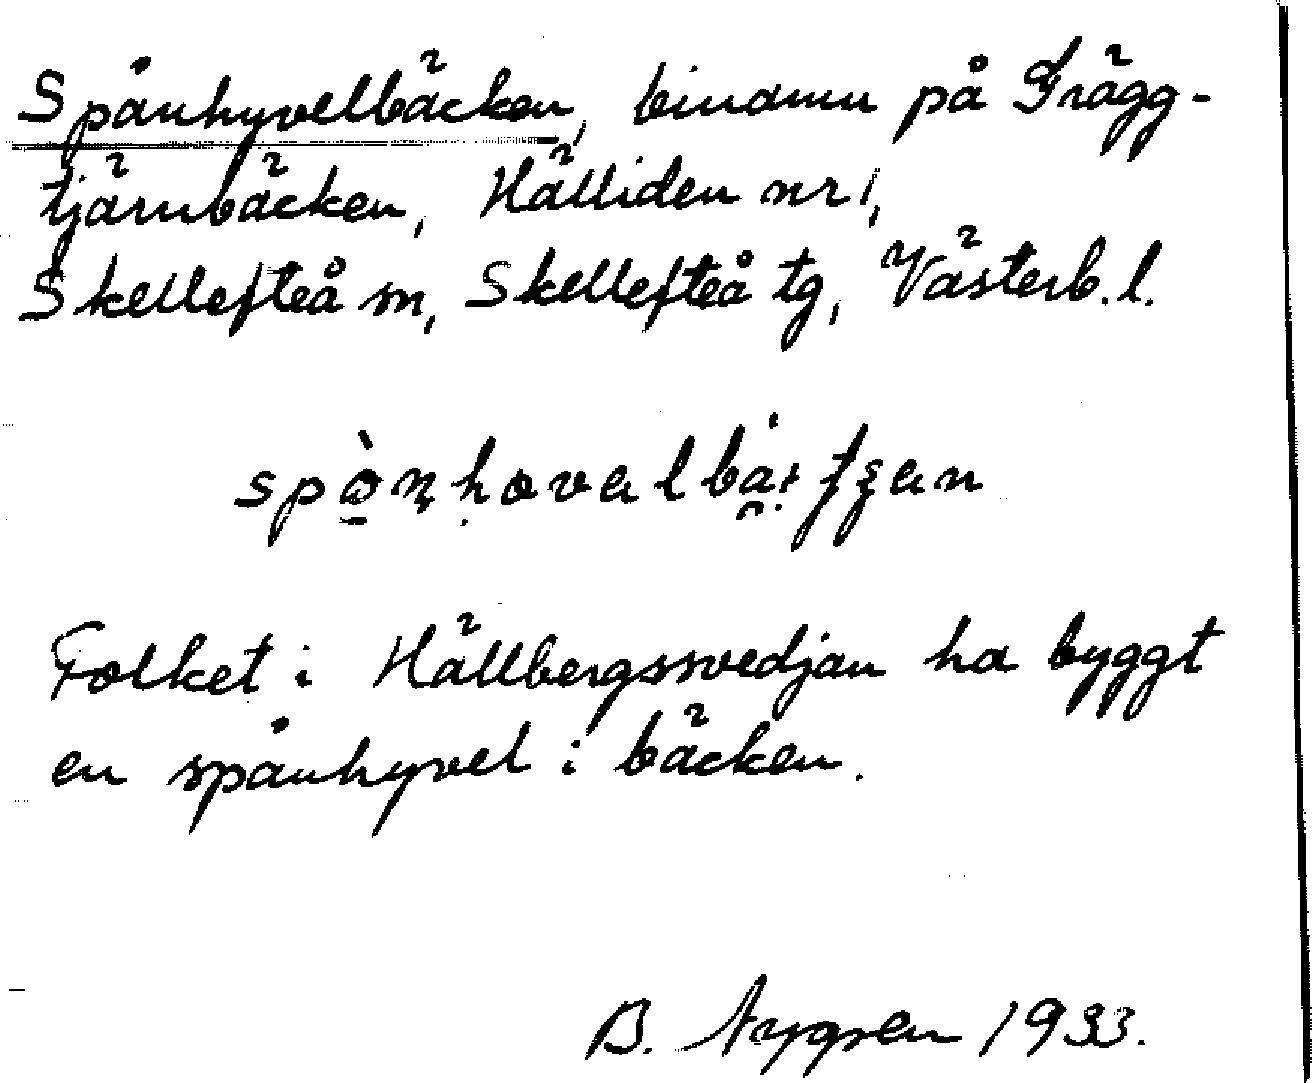 Spånhyvelbäcken, binamn på Trägg-
tjärnbäcken, Hälliden nr 1,
Skellefteå sn, Skellefteå tg, Västerb. l.
Folket i Hällbergssvedjan ha byggt
en spånhyvel i bäcken.
B. Nygren 1933.